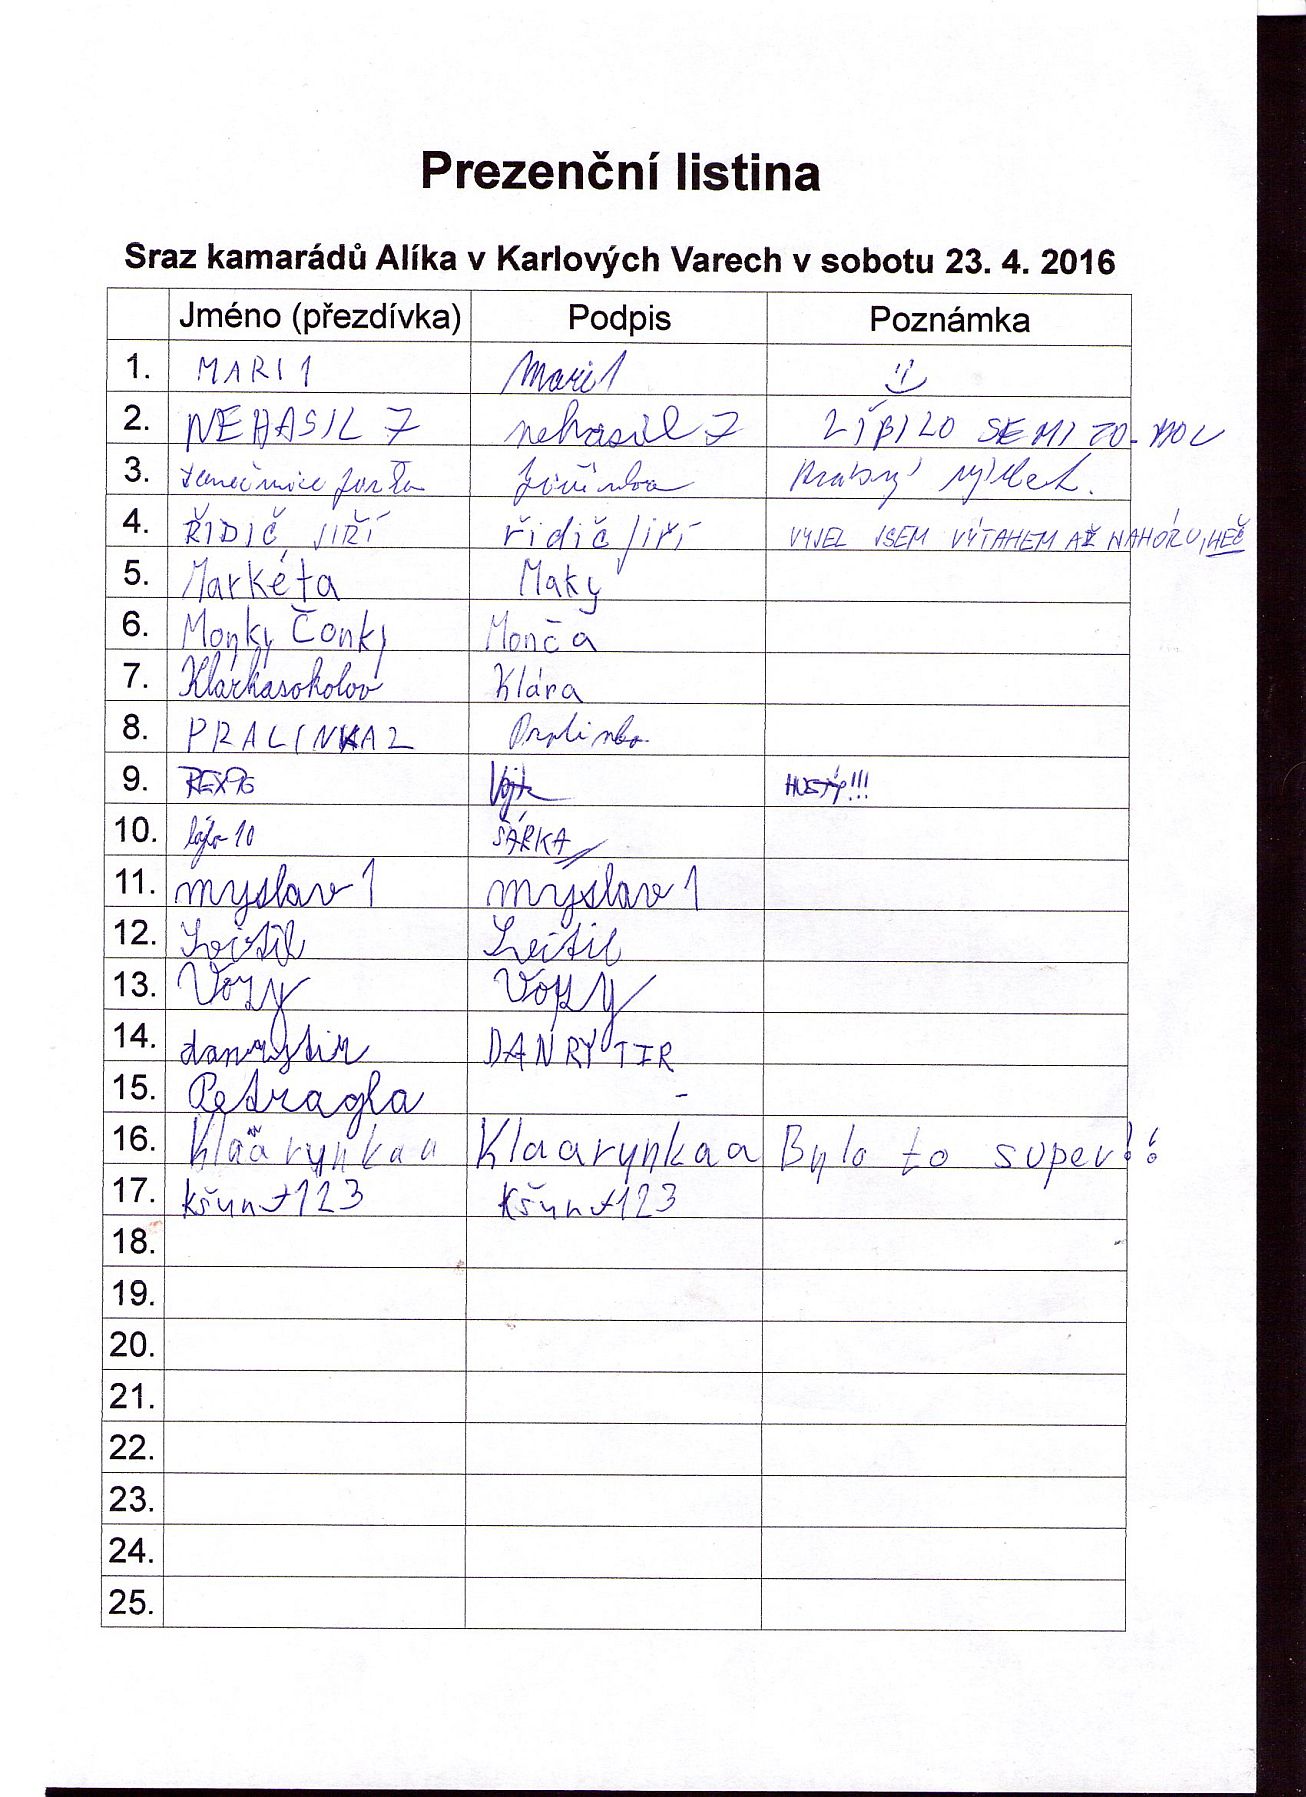 Prezenční listina
Sraz kamarádů Alíka v Karlových Varech v sobotu 23. 4. 2016
Jméno (přezdívka) Podpis Poznámka
1. MARI1 Mari1
2. NEHASIL 7 nehasil 7 LÍBILO SE MI TO-MOC
3. výlet.
4. ŘIDIČ JIŘÍ řidič Jiří VYJEL JSEM VÝTAHEM AŽ NAHORU, HEČ
5. Markéta Maky
6. Monky Čonky Monča
7. Klárkasokolov Klára
8. PRALINKA2 Pralinka
9. REX96 Vojta HUSTÝ!!!
10. ŠÁRKA
11. myslav1 myslav1
12.
13. Vopy
14. danrytir DANRYTIR
15. Petragla -
16. Klaarynkaa Klaarynkaa Bylo to super!!
17. kšunt123 kšunt123
18.
19.
20.
21.
22.
23.
24.
25.